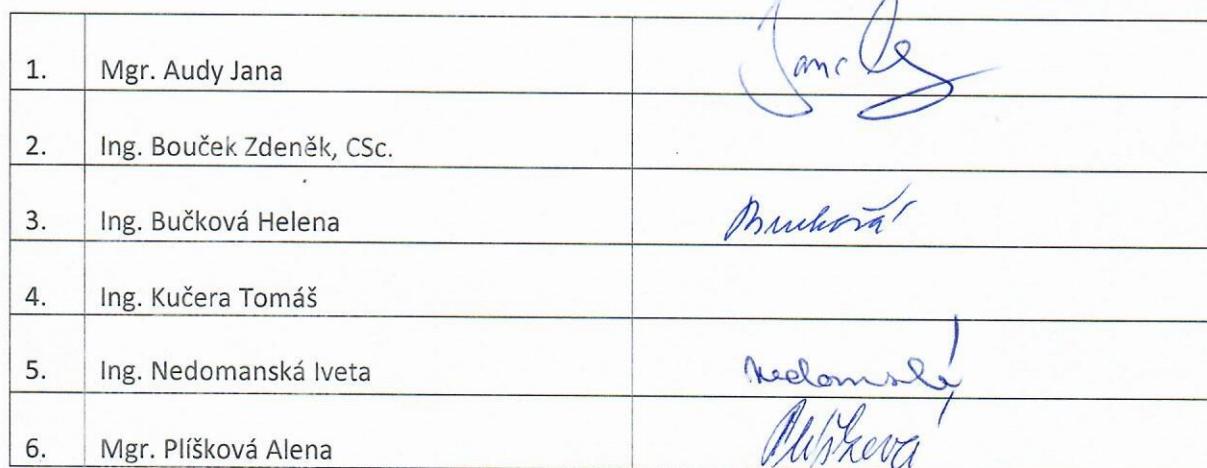 1. Mgr. Audy Jana
2. Ing. Bouček Zdeněk, CSc.
3. Ing. Bučková Helena
4. Ing. Kučera Tomáš
5. Ing. Nedomanská Iveta
6. Mgr. Plíšková Alena Plíšková